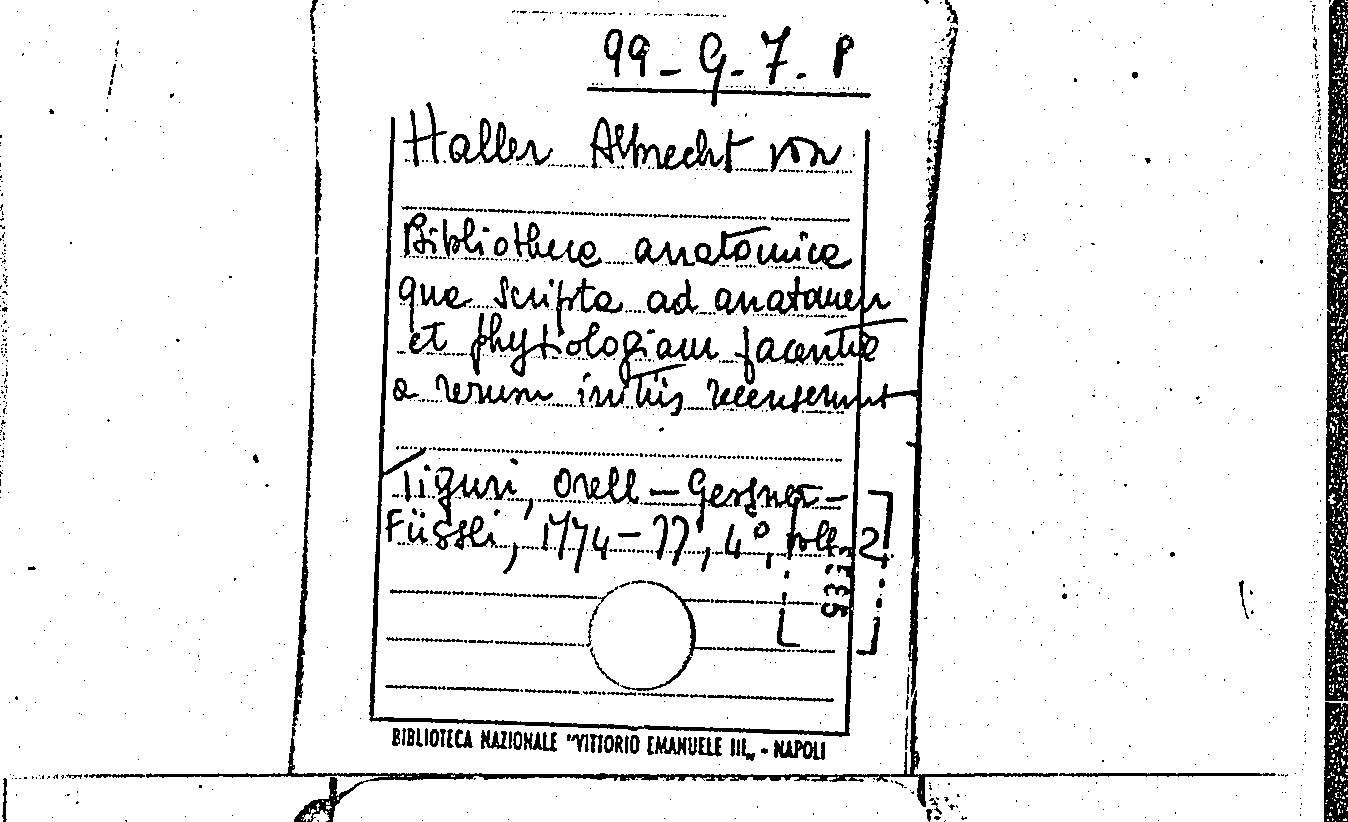 99-G-7. P
Haller Albrecht von
Bibliotheca anatomica
qua scripta ad anatomen
et physiologiam facentia
a rerum initiis recenserunt
Tiguri, Orell-Gessner-
Füssli, 1774-77, 4°, voll. 2
BIBLIOTECA NAZIONALE "VITTORIO EMANUELE III„ - NAPOLI